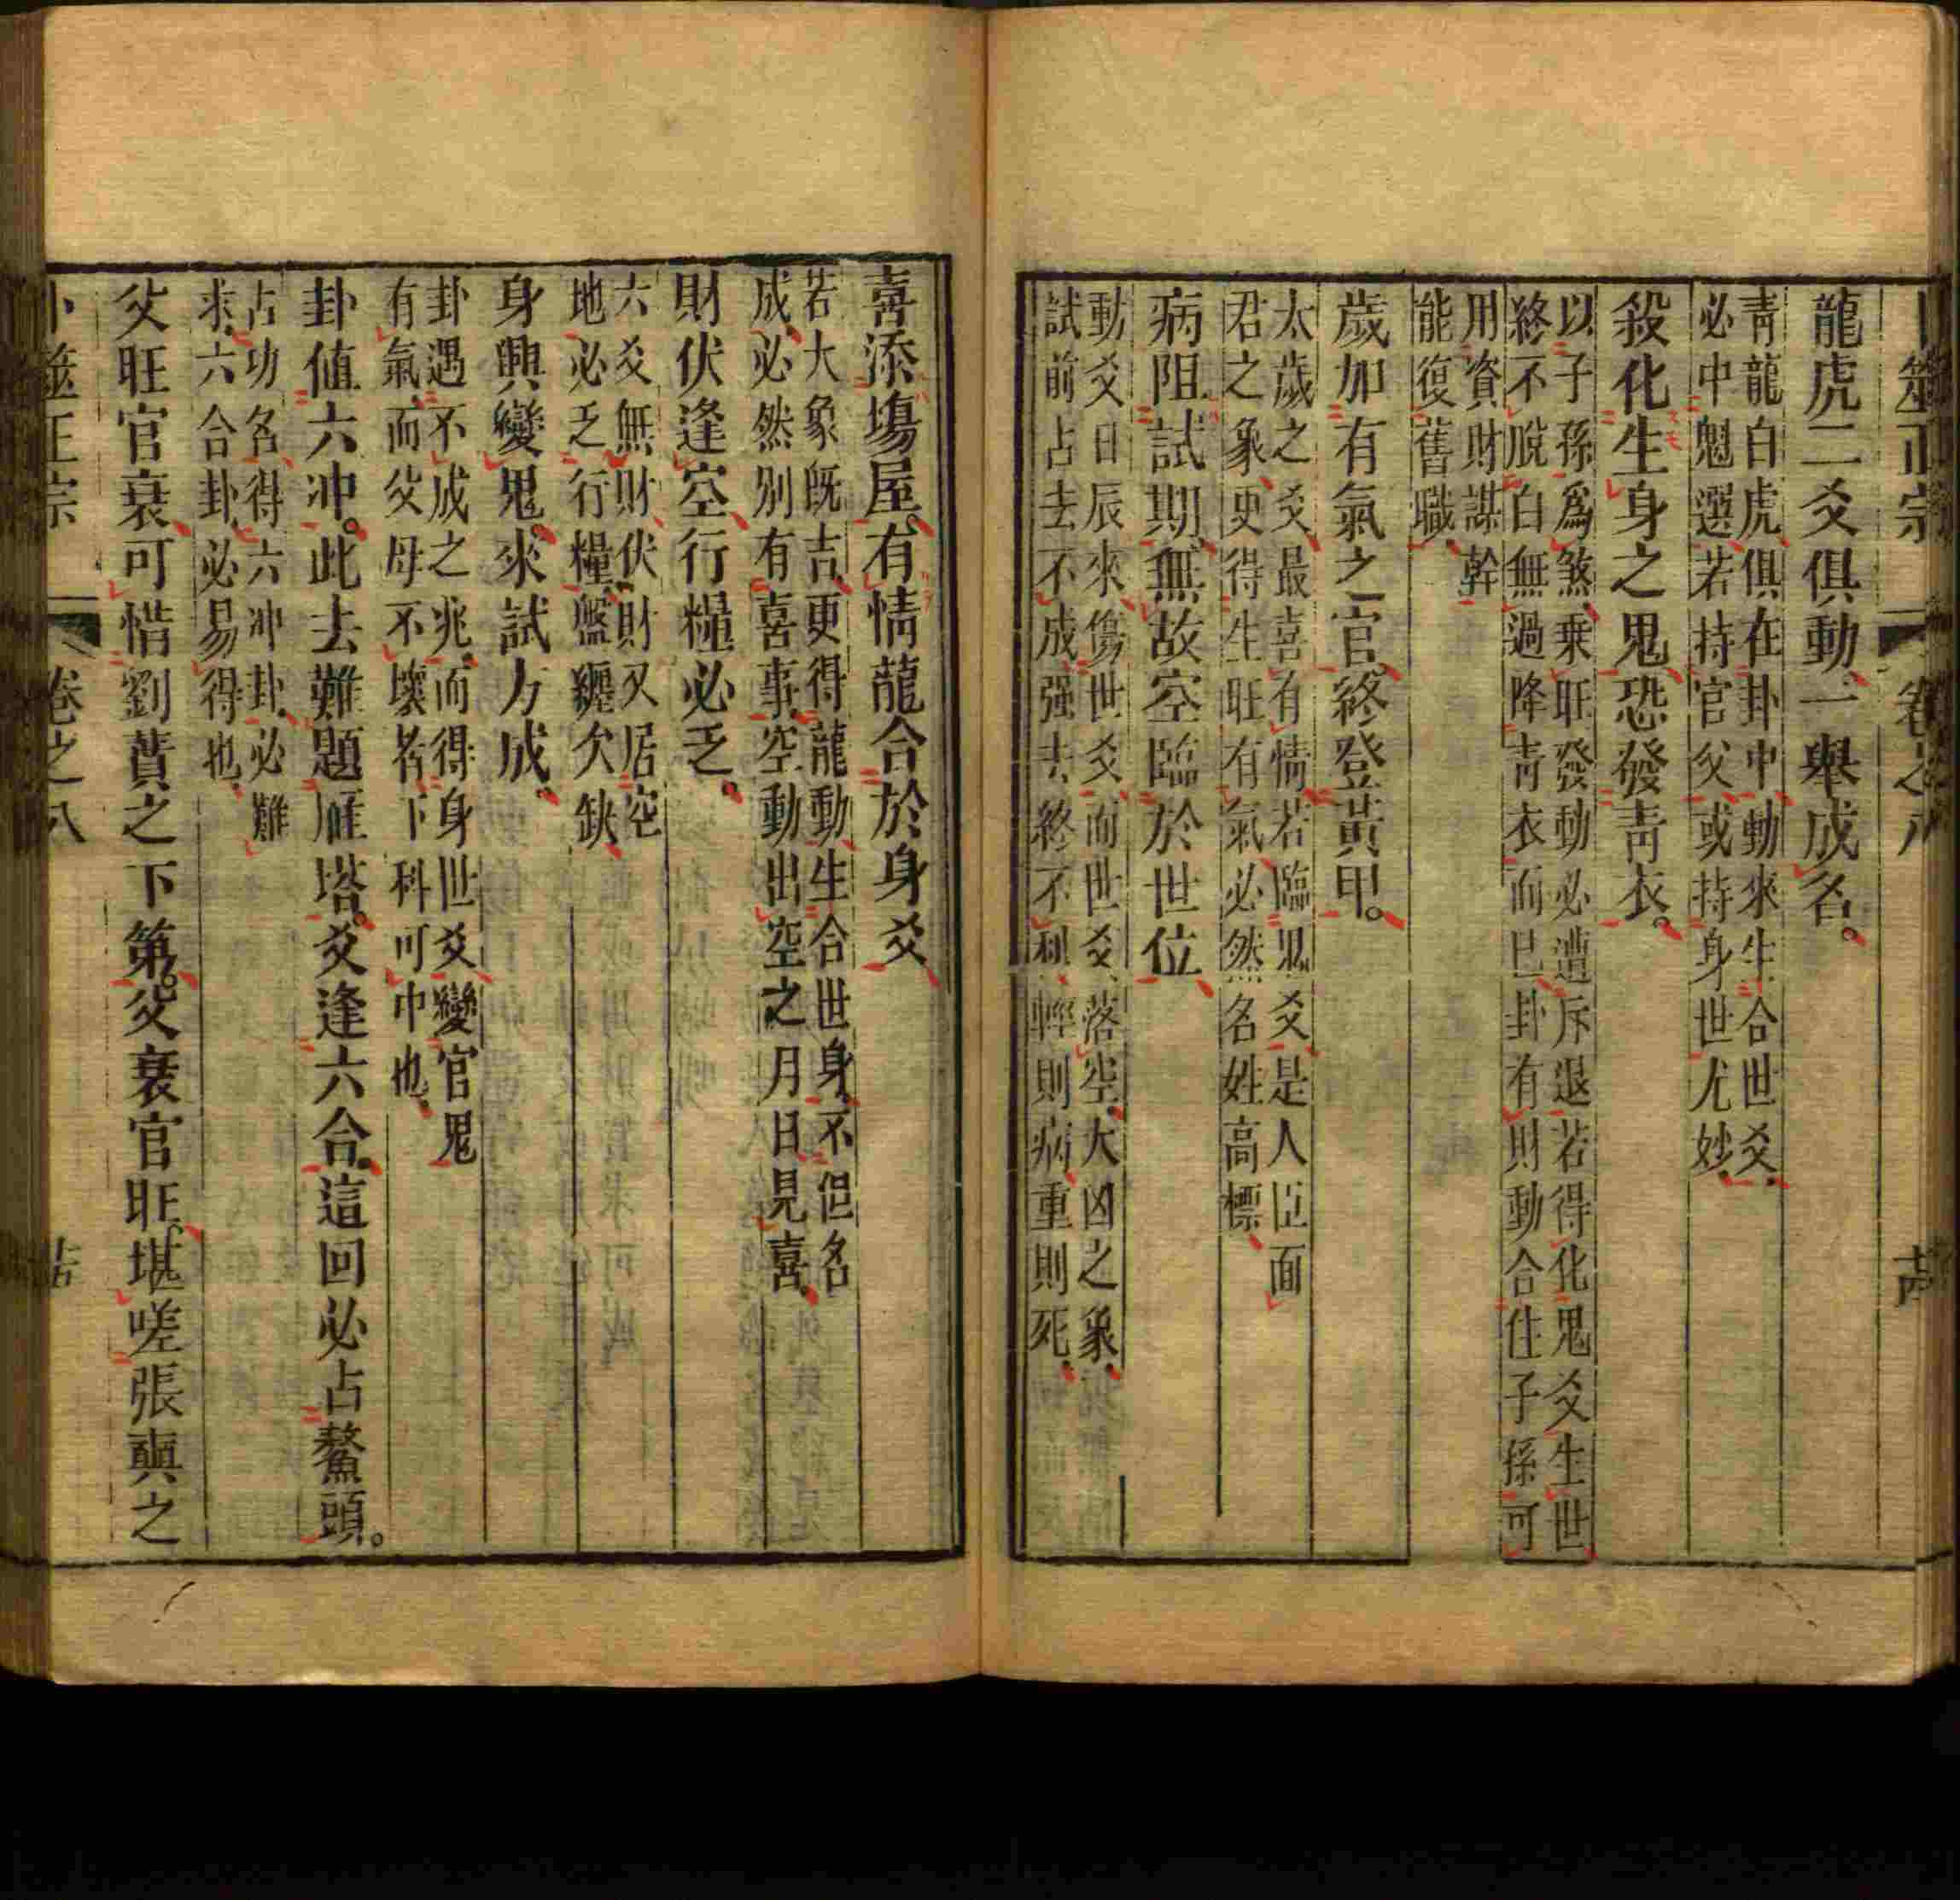 卜筮正宗 卷之八 十四
龍虎二爻俱動、一舉成名。
青龍白虎俱在卦中動來生合世爻、
必中魁選若持官父或持身世尤妙、
殺化生身之鬼恐發青衣。
以子孫爲煞、乘旺發動必遭斥退若得化鬼爻生世
終不脫白無過降青衣而已卦有財動合住子孫可
用資財謀幹
能復舊職、
歲加有氣之官、終登黃甲。
太歲之爻、最喜有情若臨鬼爻是人臣面
君之象更得生旺有氣必然名姓高標、
病阻試期、無故空臨於世位
動爻日辰來傷世爻而世爻落空、大凶之象、
試前占去不成强去終不利輕則病重則死、
喜添塲屋。有情龍合於身爻
若大象旣吉更得龍動生合世身、不但名
成、必然別有喜事、空動出空之月日見喜、
財伏逢空行糧必乏。
六爻無財伏財又居空
地必乏行糧、盤纏欠缺
身興變鬼、來試方成、
卦遇不成之兆、而得身世爻變官鬼
有氣、而父母不壞者下科可中也、
卦値六冲。此去難題雁塔。爻逢六合、這回必占鰲頭。
占功名得六冲卦、必難
求、六合卦、必易得也、
父旺官衰可惜劉蕡之下第。父衰官旺。堪嗟張奭之
卜筮正宗 卷之八